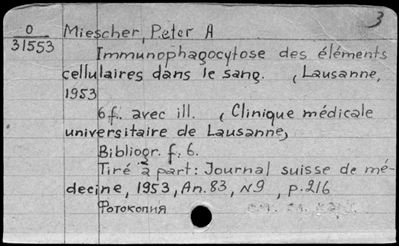 3
0
31553
Miescher, Peter A
Immunophagocytose des éléments
cellulaires dans le sang. (Lausanne,
1953
6f. avec ill. (Clinique médicale
universitaire de Lausanne)
Bibliogr. f. 6.
Tiré à part: Journal suisse de mé-
decine, 1953, An. 83, N9, p. 216
Фотокопия